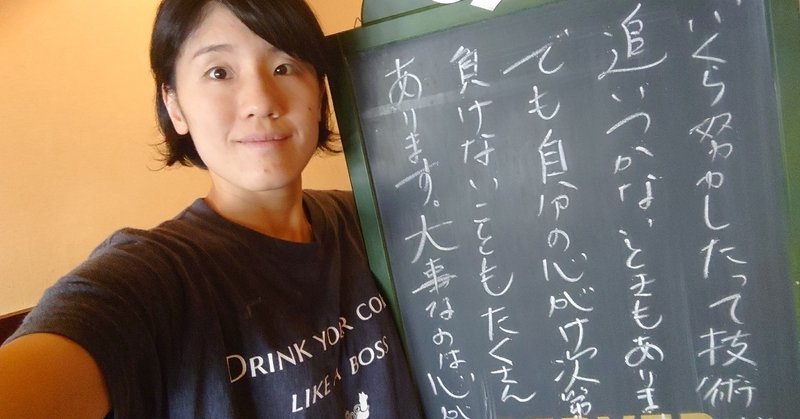 いくら努力したって技術
追いつかないときもありま
でも自分の心がけ次第
負けないこともたくさん
あります。大事なのは心が
DRINK YOUR CO
LIKE A BOSS